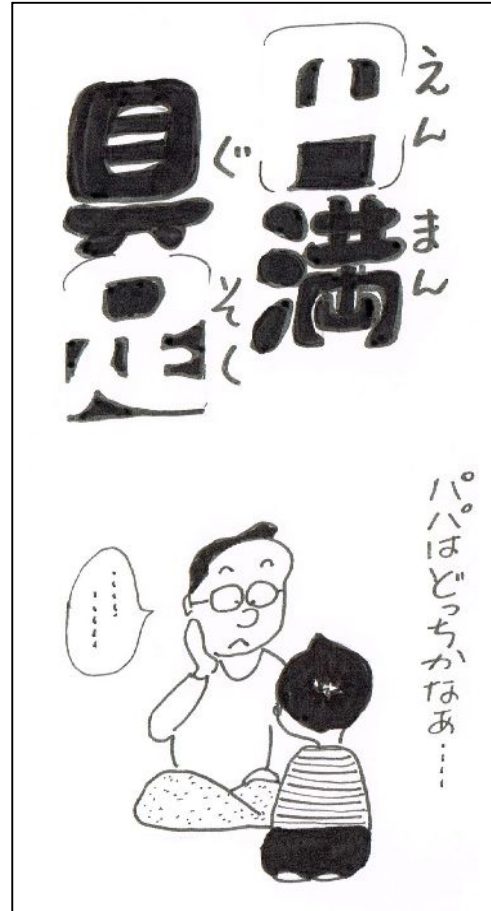 円満
えんまん
具足
ぐそく
パパはどっちかなぁ……
…………